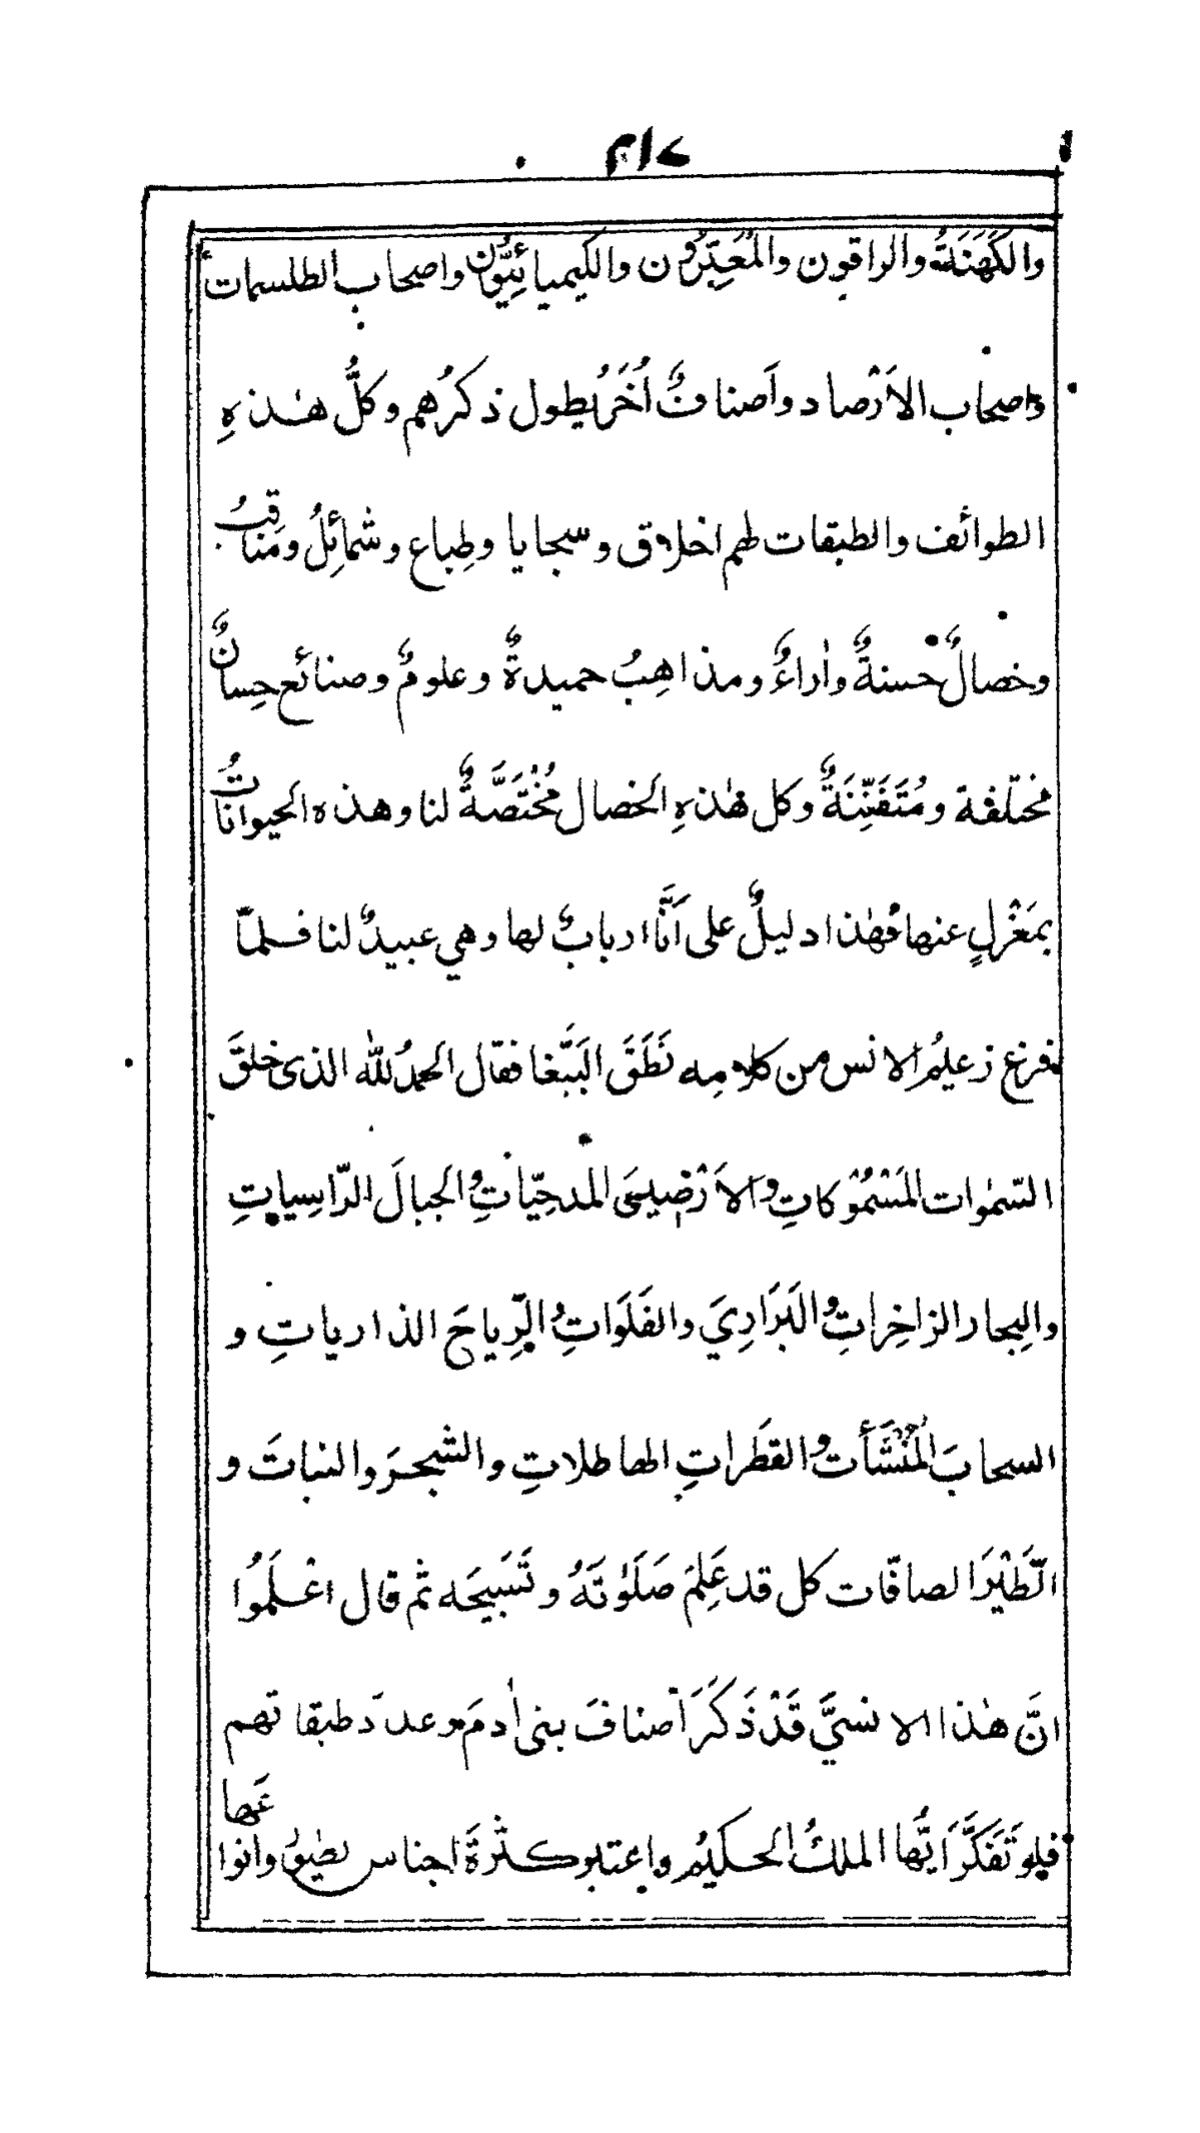 ٢١٧
والكَهَنَةُ والراقون والمُعَبِّرُون والكيميائِيُّون واصحاب الطلسمات
واصحاب الاَرْصاد واَصنافٌ اُخَرُ يطول ذكرُهم وكلُّ هٰذهِ
الطوائف والطبقات لهم اخلاق وسجايا وطِباع وشمائِلُ ومناقبُ
وخصالٌ حسنةٌ واٰراءٌ ومذاهِبُ حميدةٌ وعلومٌ وصنائع حِسانٌ
مختلفة ومُتَفَنِّنَةٌ وكل هٰذهِ الخصال مُخْتَصَّةٌ لنا وهذه الحيواناتُ
بمَعْزلٍ عنها فهٰذا دليلٌ على اَنَّا اربابٌ لها وهي عبيدٌ لنا فلمّا
فرغ زعيمُ الانس من كلامِه نَطَقَ البَبَّغا فقال الحمدُ للّٰه الذى خلقَ
السّمٰوات المَسْمُوْكاتِ والاَرْضِيىنَ المدحِيّاتِ والجبالَ الرّاسِياتِ
والبِحار الزاخِراتِ والبَرَارِيَ والفَلَوَاتِ والرِّياحَ الذارياتِ و
السحابَ المُنْشَأَت والقَطراتِ الهاطلاتِ والشجرَ والنباتَ و
الّطَيْرَ الصافّات كل قد عَلِمَ صَلَوٰتَهُ وتَسبِيحَه ثم قال اعْلَمُوا
انَّ هٰذا الانسيَّ قَدْ ذَكَرَ اَصنافَ بنى اٰدمَ وعددَ طبقاتهم
فلو تَفَكَّرَ اَيُّها الملكُ الحكيمُ واعتبر كثْرةَ اجناس الطيور وانواعها